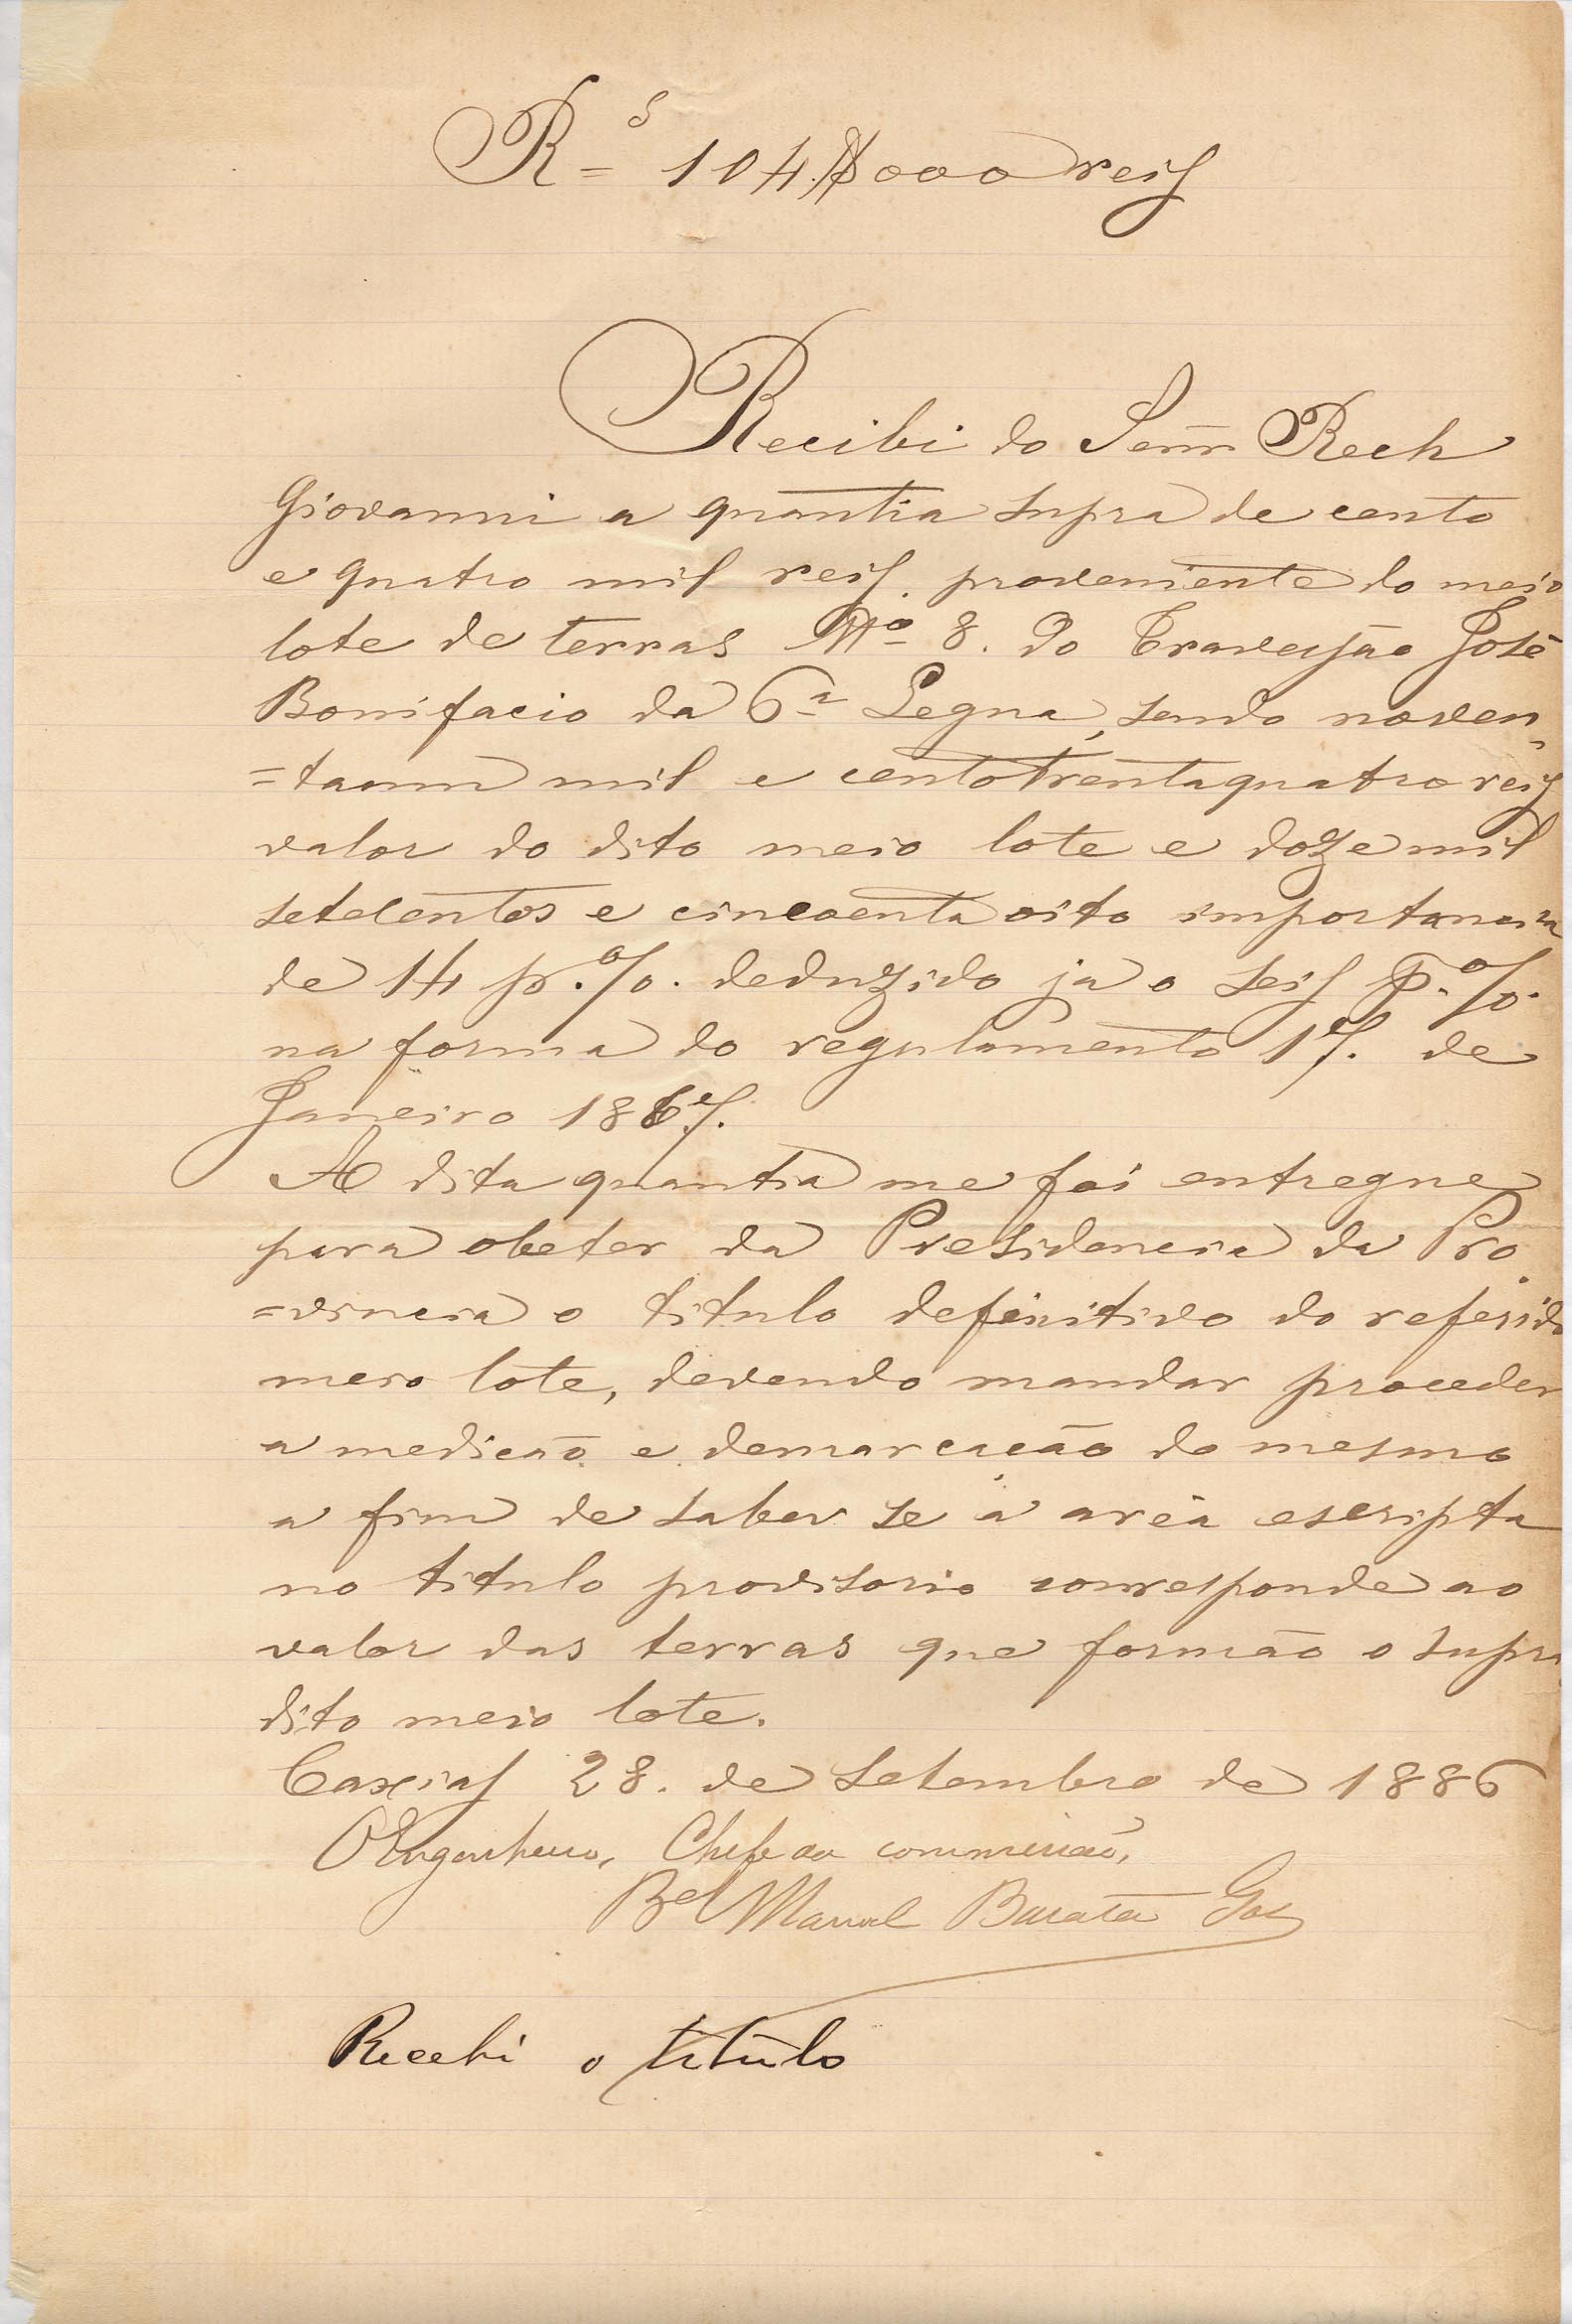 Rs = 104.$000 reis
Recibi do Senr Rech
Giovanni a quantia supra de cento
e quatro mil reis. proveniente do meio
lote de terras No 8. do Traversão José
Bonifacio da 6a Legua, sendo noven
=taum mil e centotrentaquatro reis
valor do dito meio lote e doze mil
setecentos e cincoenta oito importancia
de 14 p.%. deduzido ja o seis p.%.
na forma do regulamento 17. de
Janeiro 1867.
A dita quantia me foi entregue
para obeter da Presidencia da Pro
=vincia o titulo definitivo do referido
meio lote, devendo mandar proceder
a medicão e demarcacão do mesmo
a fim de saber se a aréa escripta
no titulo provisorio corresponde ao
valor das terras que formão o supra
dito meio lote.
Caxias 28. de Setembro de 1886
O Engenheiro, Chefe da commissão,
Bel Manoel Barata Goes
Recebi o titulo